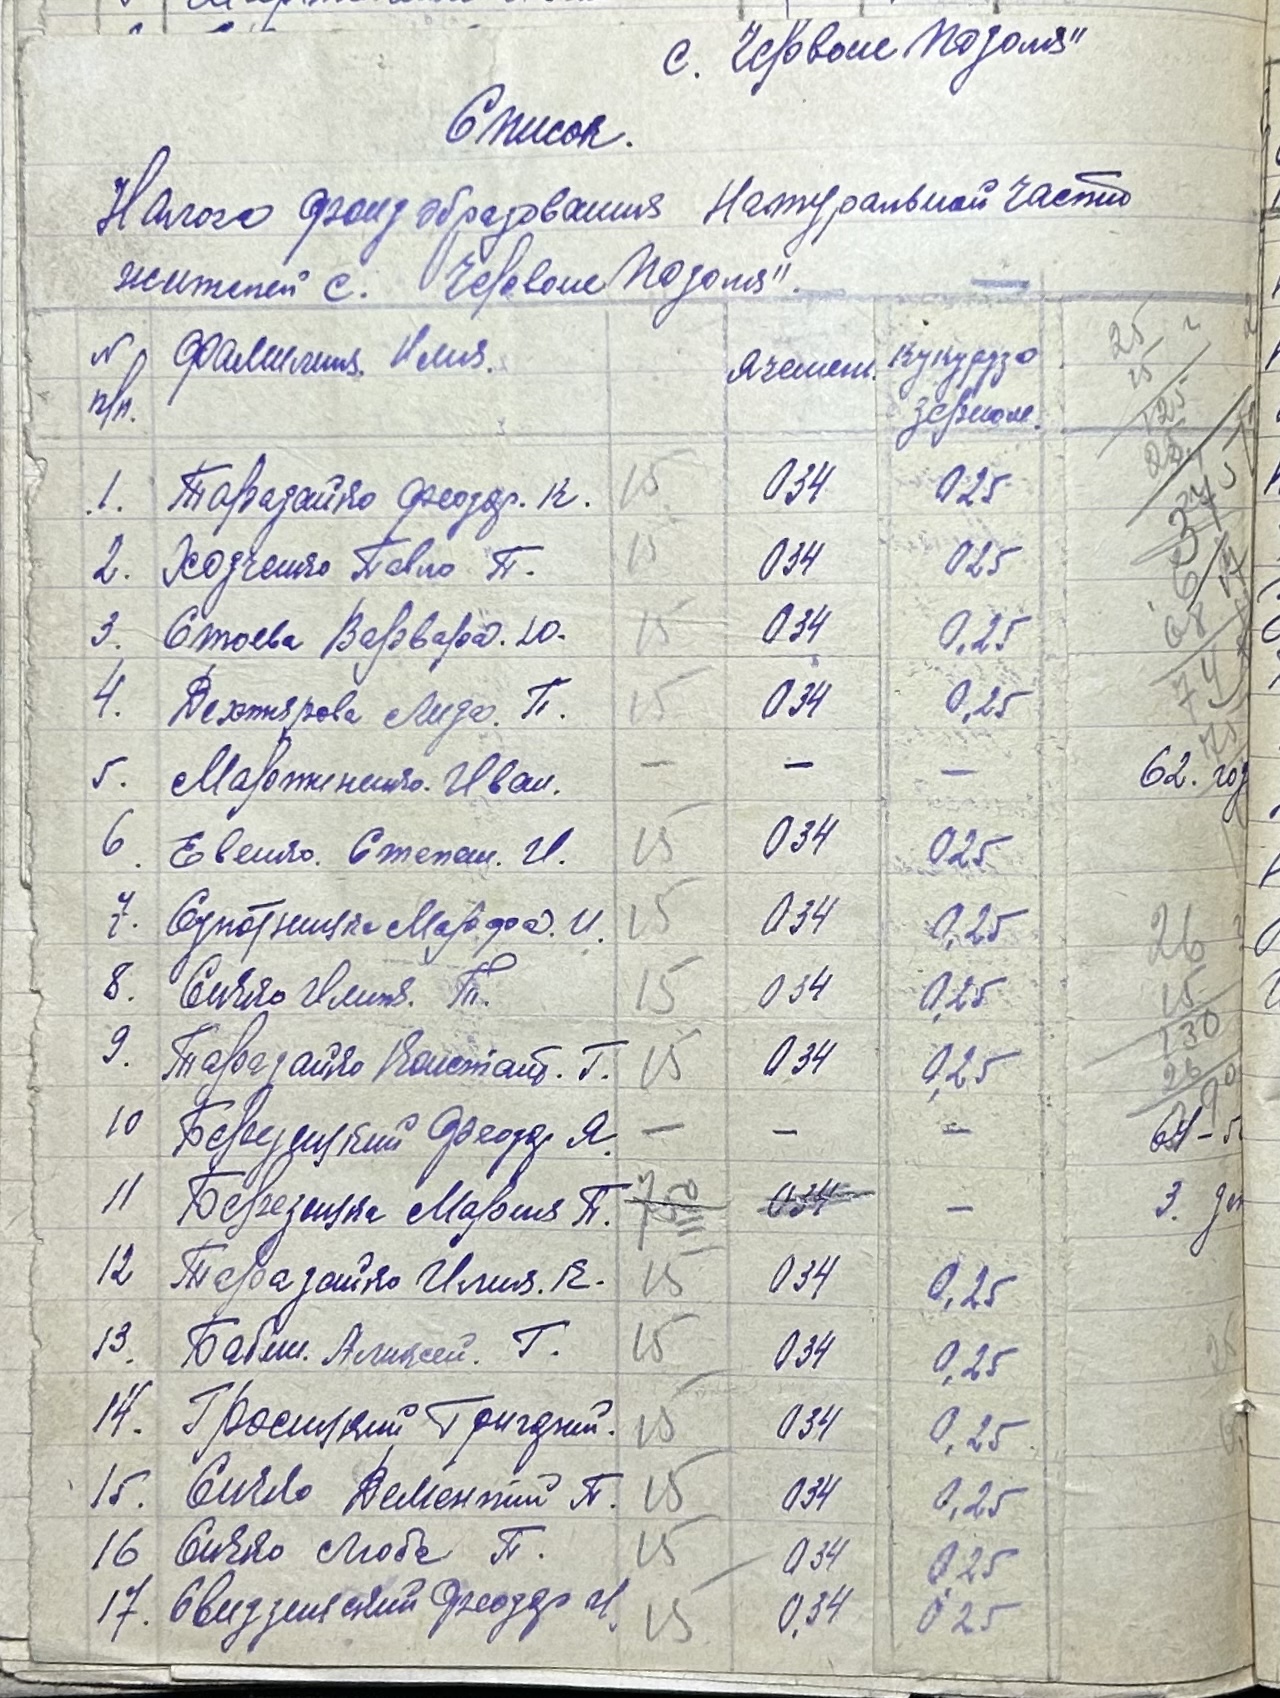 с. Червоне Подоля"
Список.
Налого фонд образования Натуральной части
жителей с. Червоне Подоля".
№ п/п. Фамилия. Имя. Ячмень. Кукурудзо зерном.
1. Тарадайко Феодр. К. 15 034 025
2. Ходченко Павло П. 15 034 025
3. Стоева Варвара. Ю. 15 034 0,25
4. Дехтярова Лида. П. 15 034 0,25
5. Марженко. Иван. — — — 62. год
6. Евенко. Степан. И. 15 034 025
7. Марфа. И. 15 034 0,25
8. Сичко Илия. П. 15 034 0,25
9. Тарадайко Констант. Г. 15 034 0,25
10 Березицкий Феодр Я. — — —
11 Березицка Мария П. 034 — 3.
12 Тарадайко Илия. К. 15 034 0,25
13. Бабин. Алексей. Г. 15 034 0,25
14. Гросицкий Григорий. 15 034 0,25
15. Сичко Дементий П. 15 034 0,25
16 Сичко Люба П. 15 034 025
17. Свидзинский Феодр И. 15 0,34 025
25
15
125
26
15
130
26